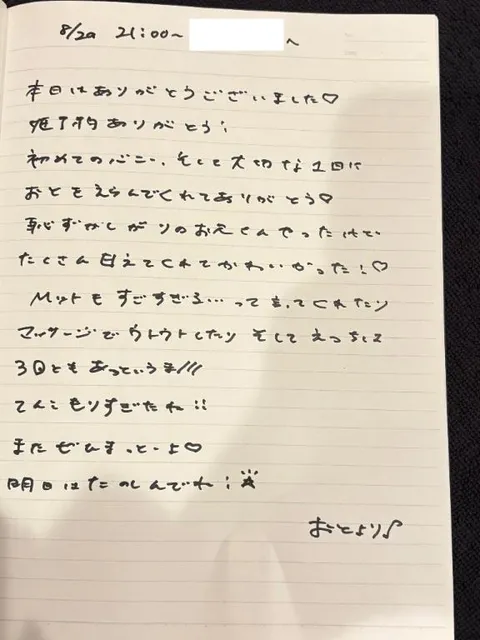 8/29 21:00〜
へ
本日はありがとうございました♡
姫予約ありがとう!
初めてのバニー、そして大切な1日に
おとをえらんでくれてありがとう♡
恥ずかしがりのお兄くんやったけど
たくさん甘えてくれてかわいかった!♡
Mットもすごすぎる…って言ってくれたり
マッサージでウトウトしたり そして えっちは
3回ともあっというま///
てんこもりすぎたね!!
またぜひまっとーよ♡
明日はたのしんでね!
おとより♪